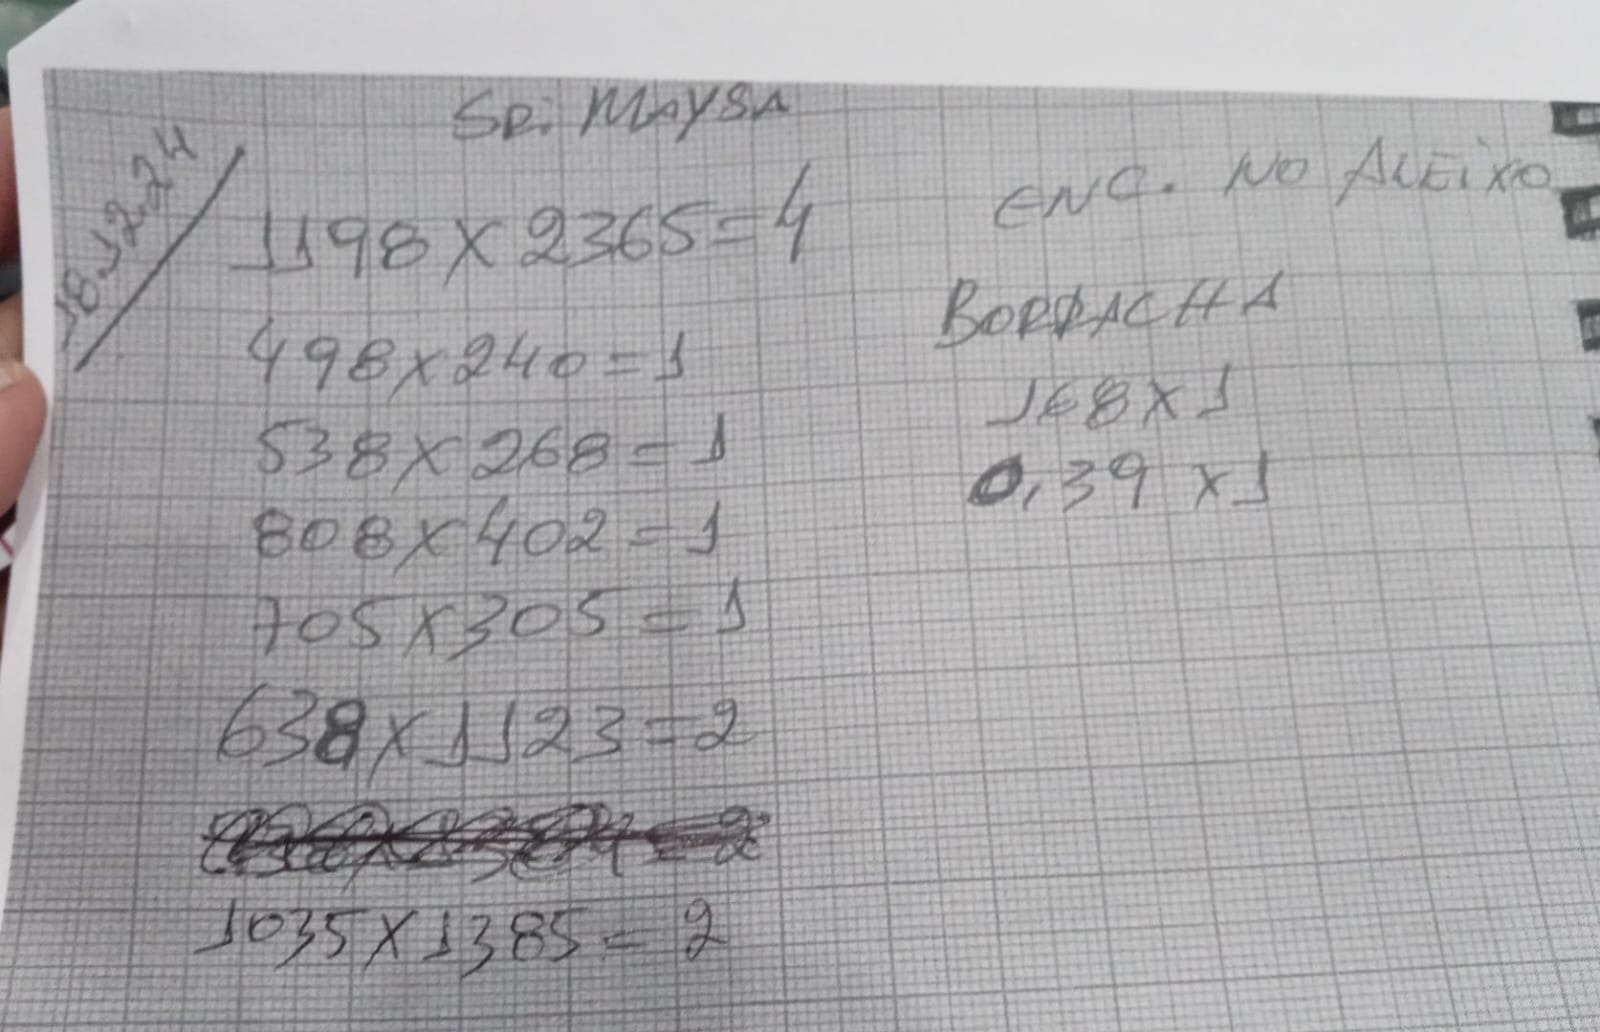 18.12.24
SR: MAYSA
1198 X 2365 = 4
498 x 240 = 1
538 x 268 = 1
808 x 402 = 1
705 x 305 = 1
638 x 1123 = 2
1035 X 1385 = 2
ENC. NO ALEIXO
BORRACHA
168 x 1
0,39 x 1